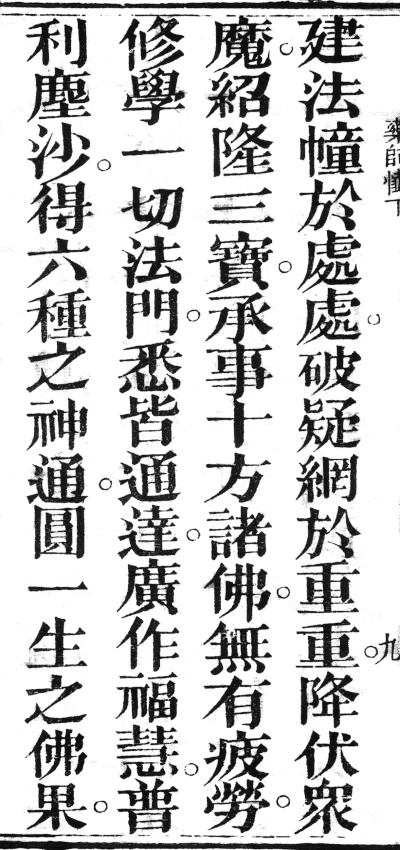 藥師懺下
九
建法幢於處處。破疑網於重重。降伏眾
魔。紹隆三寶。承事十方諸佛。無有疲勞。
修學一切法門。悉皆通達。廣作福慧。普
利塵沙。得六種之神通。圓一生之佛果。